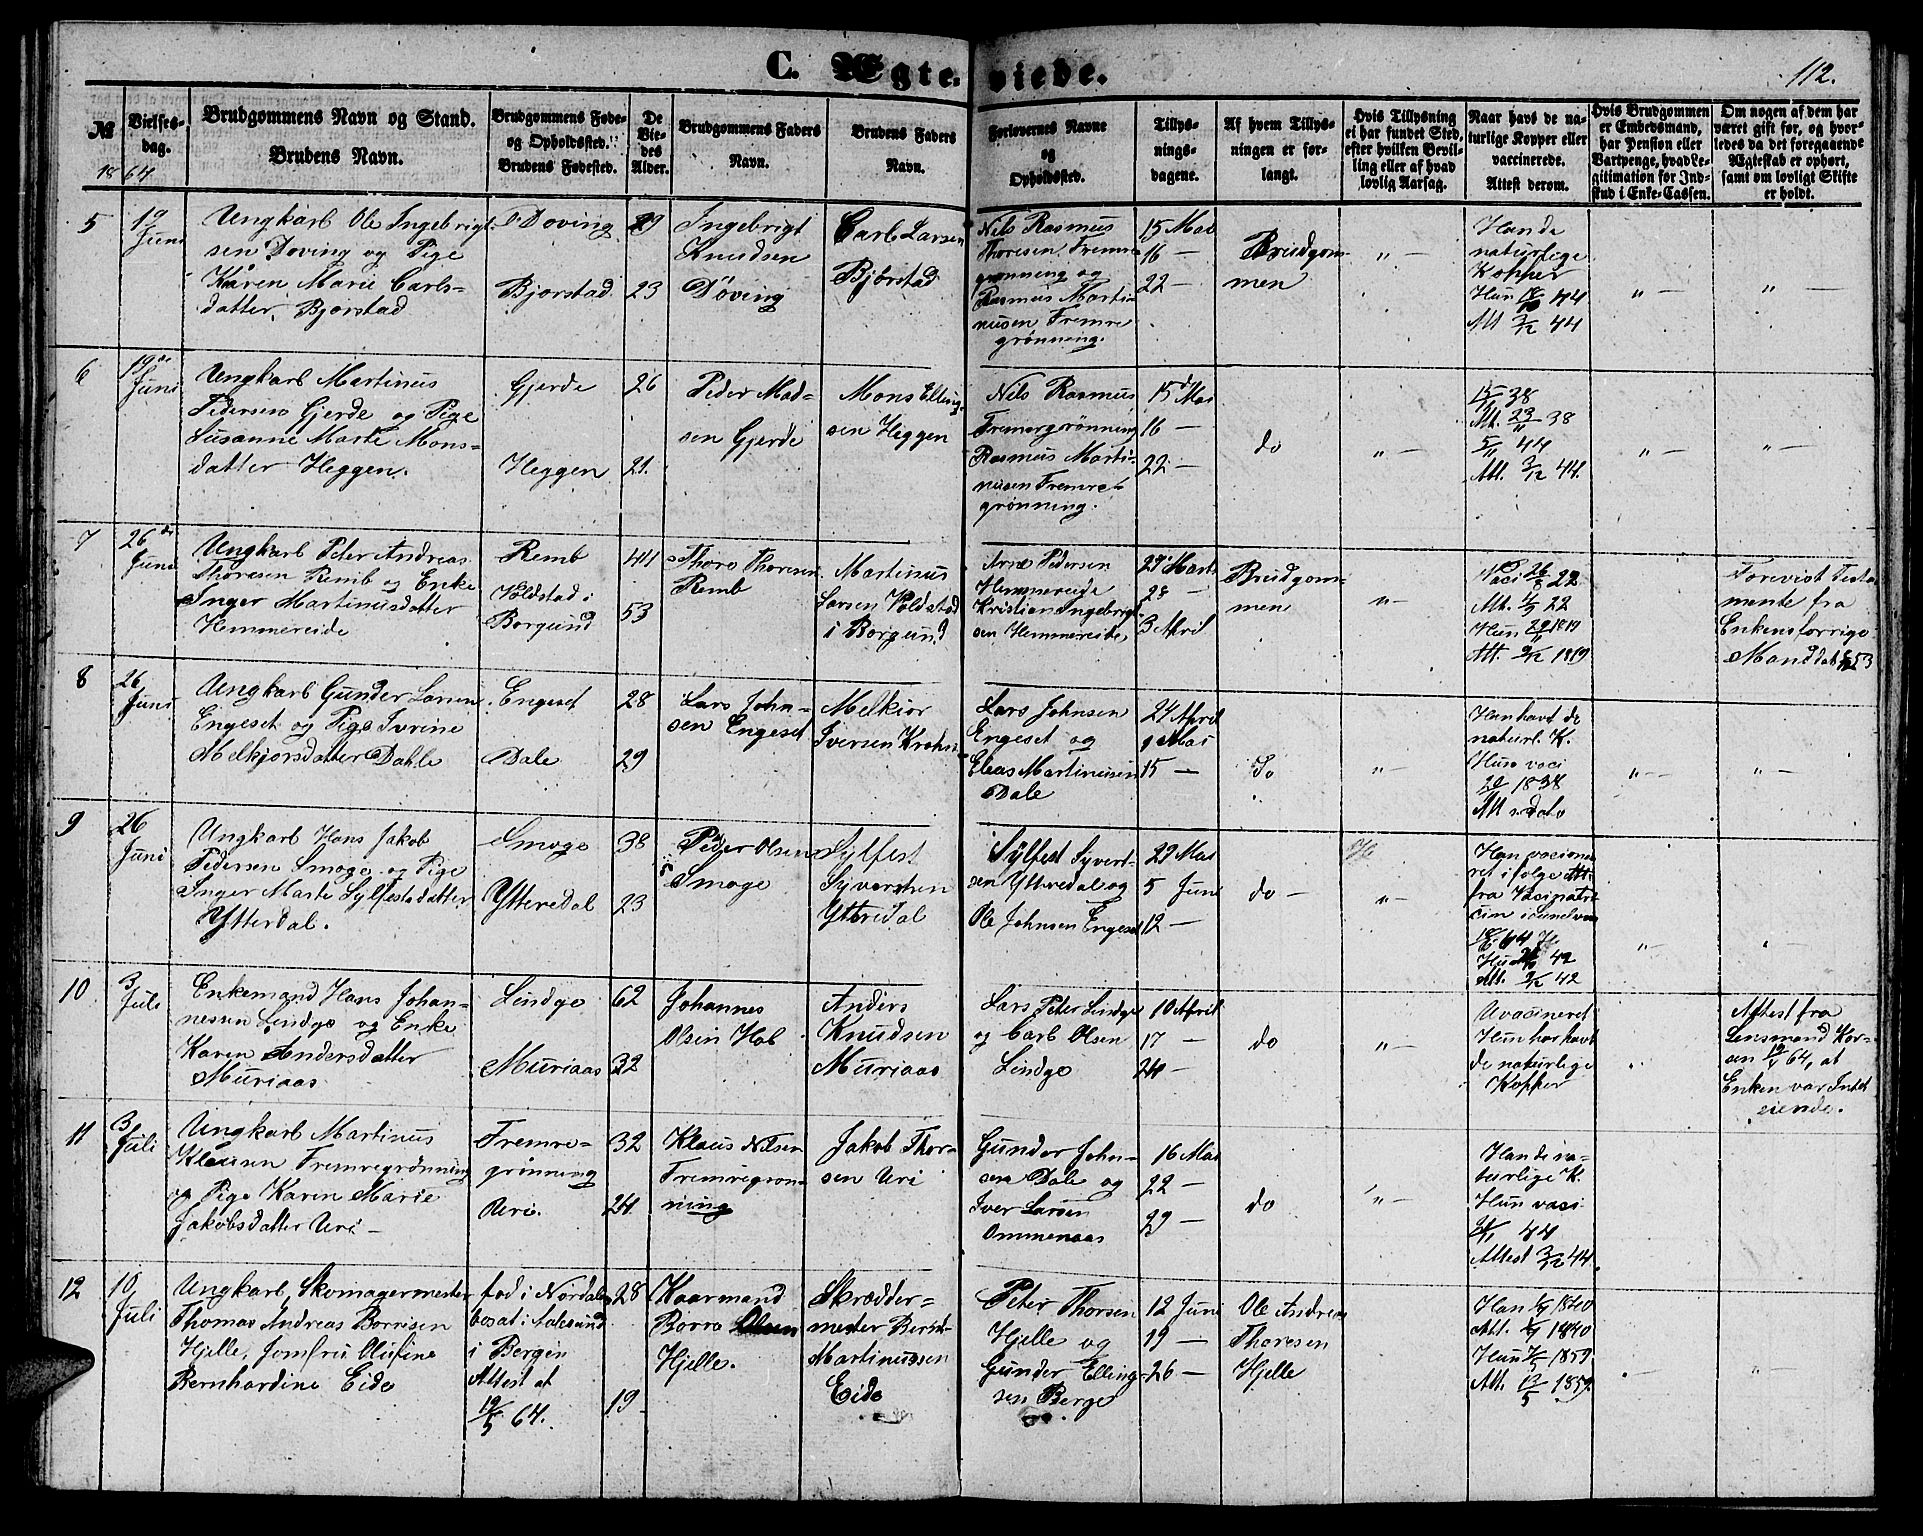 C. Ægteviede.
112.
№
1864
Vielses-
dag.
Brudgommens Navn og Stand.
Brudens Navn.
Brudgommens Føde-
og Opholdssted.
Brudens Fødested.
De
Vie-
des
Alder.
Brudgommens Faders
Navn.
Brudens Faders
Navn.
Forlovernes Navne
og
Opholdssted.
Tillys-
nings-
dagene.
Af hvem Tillys-
ningen er for-
langt.
Hvis Tillysning
ei har fundet Sted,
efter hvilken Bevil-
ling eller af hvad
lovlig Aarsag.
Naar havt de na-
turlige Kopper eller
vaccinerede.
Attest derom.
Hvis Brudgommen
er Embedsmand,
har Pension eller
Vartpenge, hvad Le-
gitimation for Ind-
skud i Enke-Cassen.
Om nogen af dem har
været gift før, og hvor-
ledes da det foregaaende
Ægteskab er ophørt,
samt om lovligt Skifte
er holdt.
5
19
Juni
Ungkarl Ole Ingebrigt-
sen Døving og Pige
Karen Marie Carls-
datter, Bjorstad
Døving
Bjorstad
29
23
Ingebrigt
Knudsen
Døving
Carl Larsen
Bjørstad
Nils Rasmus
Thoresen Fremre
grønning og
Rasmus Marti-
nusen Fremre
grønning.
15 Mai
16 —
22 —
Brudgom-
men
" —
Han de
naturlige
Kopper
Hun 44
Att 3/12 44
" —
" —
6
19de
Juni
Ungkarl Martinus
Pedersen Gjerde og Pige
Susanne Marte Mons-
datter Heggen.
Gjerde
Heggen
26
21.
Peder Mad-
sen Gjerde
Mons Elling-
sen Heggen
Nils Rasmus
Fremregrønning
Rasmus Marti-
nusen Fremre
grønning.
15de Mai
16 —
22 —
do
" —
38
Att. 23/11 38
5/11 44
Att. 3/12 44.
" —
" —
7
26de
Juni
Ungkarl Peter Andreas
Thoresen Remb og Enke
Inger Martinusdatter
Hemmereide
Remb
Voldstad i
Borgund
44
53
Thore Thoresen
Remb
Martinus
Larsen Voldstad
i Borgund
Arne Pedersen
Hemmereide
Kristian Ingebrigt-
sen Hemmereide,
27de Marts
28 —
3 April
Brudgom-
men
" —
Vaci 26 22
Att. 22
Hun 1819
Att. 1819
Forevist Testa
mente fra
Enkens forrige
Mand dat 53
8
26
Juni
Ungkarl Gunder Larsen
Engeset og Pige Ivrine
Melkjorsdatter Dahle
Engeset
Dale
28
29
Lars John-
sen Engeset
Melkior
Iversen Krohn
Lars Johnsen
Engeset og
Elias Martinusen
Dale
24 April
1 Mai
15 —
do
" —
Han havt de
naturl. K.
Hun vaci
1838
Att s dato
" —
" —
9
26
Juni
Ungkarl Hans Jakob
Pedersen Smoge og Pige
Inger Marte Sylfestdatter
Ytterdal.
Smoge
Ytteredal
38
23
Peder Olsen
Smoge
Sylfest
Syvertsen
Ytteredal
Sylfest Syvert-
sen Ytteredal og
Ole Johnsen Engeset
29 Mai
5 Juni
12 —
do —
" —
Han vacione
ret ifølge Att.
fra
64
Hun 42
Att. 42
" —
10
3
Juli
Enkemand Hans Johan-
nessen Lindge og Enke
Karen Andersdatter
Muriaas
Lindge
Muriaas
62
32
Johannes
Olsen Hol
Anders
Knudsen
Muriaas
Lars Peter Lindge
og Carl Olsen
Lindge
10 April
17 —
24 —
do
" —
Uvacineret
Hun har havt
de naturlige
Kopper
Attest fra
Lensmand Kor-
sen 64, at
Enken var Intet
eiende.
11
3
Juli
Ungkarl Martinus
Klausen Fremregrønning
og Pige Karen Marie
Jakobsdatter Uri —
Fremre-
grønning
Uri.
32
24.
Klaus Nilsen
Fremregrøn-
ning
Jakob Thor-
sen Uri
Gunder John-
sen Dale og
Iver Larsen
Ommenaas
16 Mai
22 —
29 —
do
" —
Han de na-
turlige K.
Hun vaci
44
Attest 3/12 44.
12
10
Juli
Ungkarl, Skomagermester
Thomas Andreas Borrisen
Hjelle, Jomfru Olufine
Bernhardine Eide
fød i Nordalen
bosat i Aalesund
i Bergen
Attest at
19/5 64.
28
19
Kaarmand
Borre Olsen
Hjelle.
Skrædder-
mester Bernt
Martinussen
Eide
Peter Thorsen
Hjelle og
Gunder Elling-
sen Berge
12 Juni
19 —
26 —
Ole Andreas
Thoresen
Hjelle
Han 1840
Att. 1840
Hun 1859
Att. 13/5 1859.
"